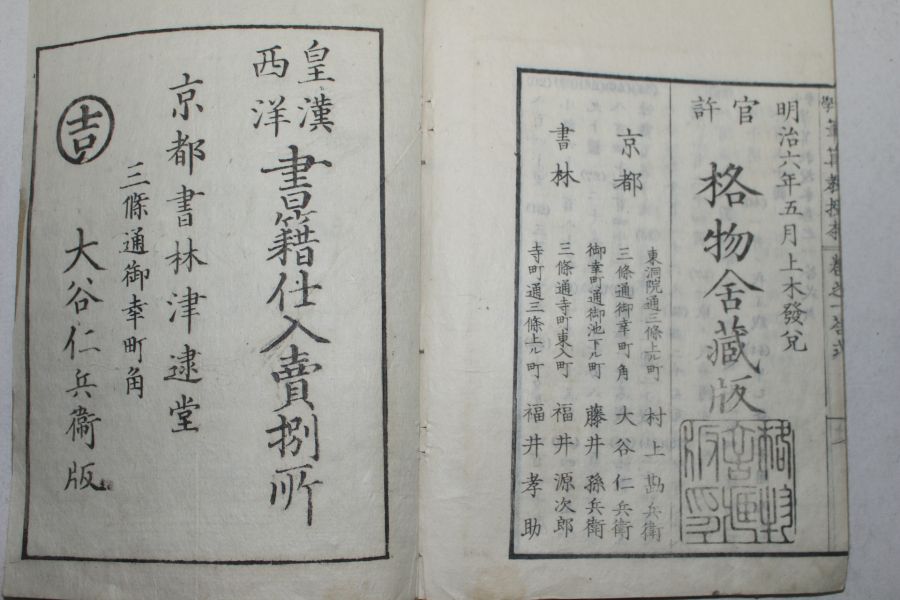 筆算教授本 卷之一
明治六年五月上木發兌
官許
格物舍藏版
京都書林
東洞院通三條上ル町 村上勘兵衛
三條通御幸町角 大谷仁兵衛
御幸町通御池下ル町 藤井孫兵衛
三條通寺町東入町 福井源次郎
寺町通三條上ル町 福井孝助
皇漢西洋
書籍仕入賣捌所
京都書林津逮堂
三條通御幸町角
大谷仁兵衞版
吉